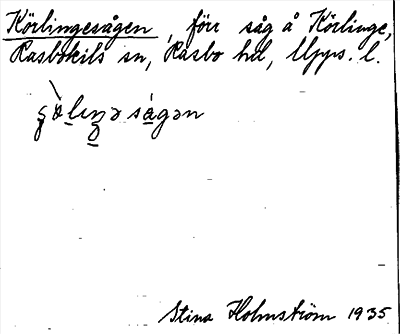 Körlingesågen, förr såg å Körlinge,
Rasbokils sn, Rasbo hd, Upps. l.
Stina Holmström 1935